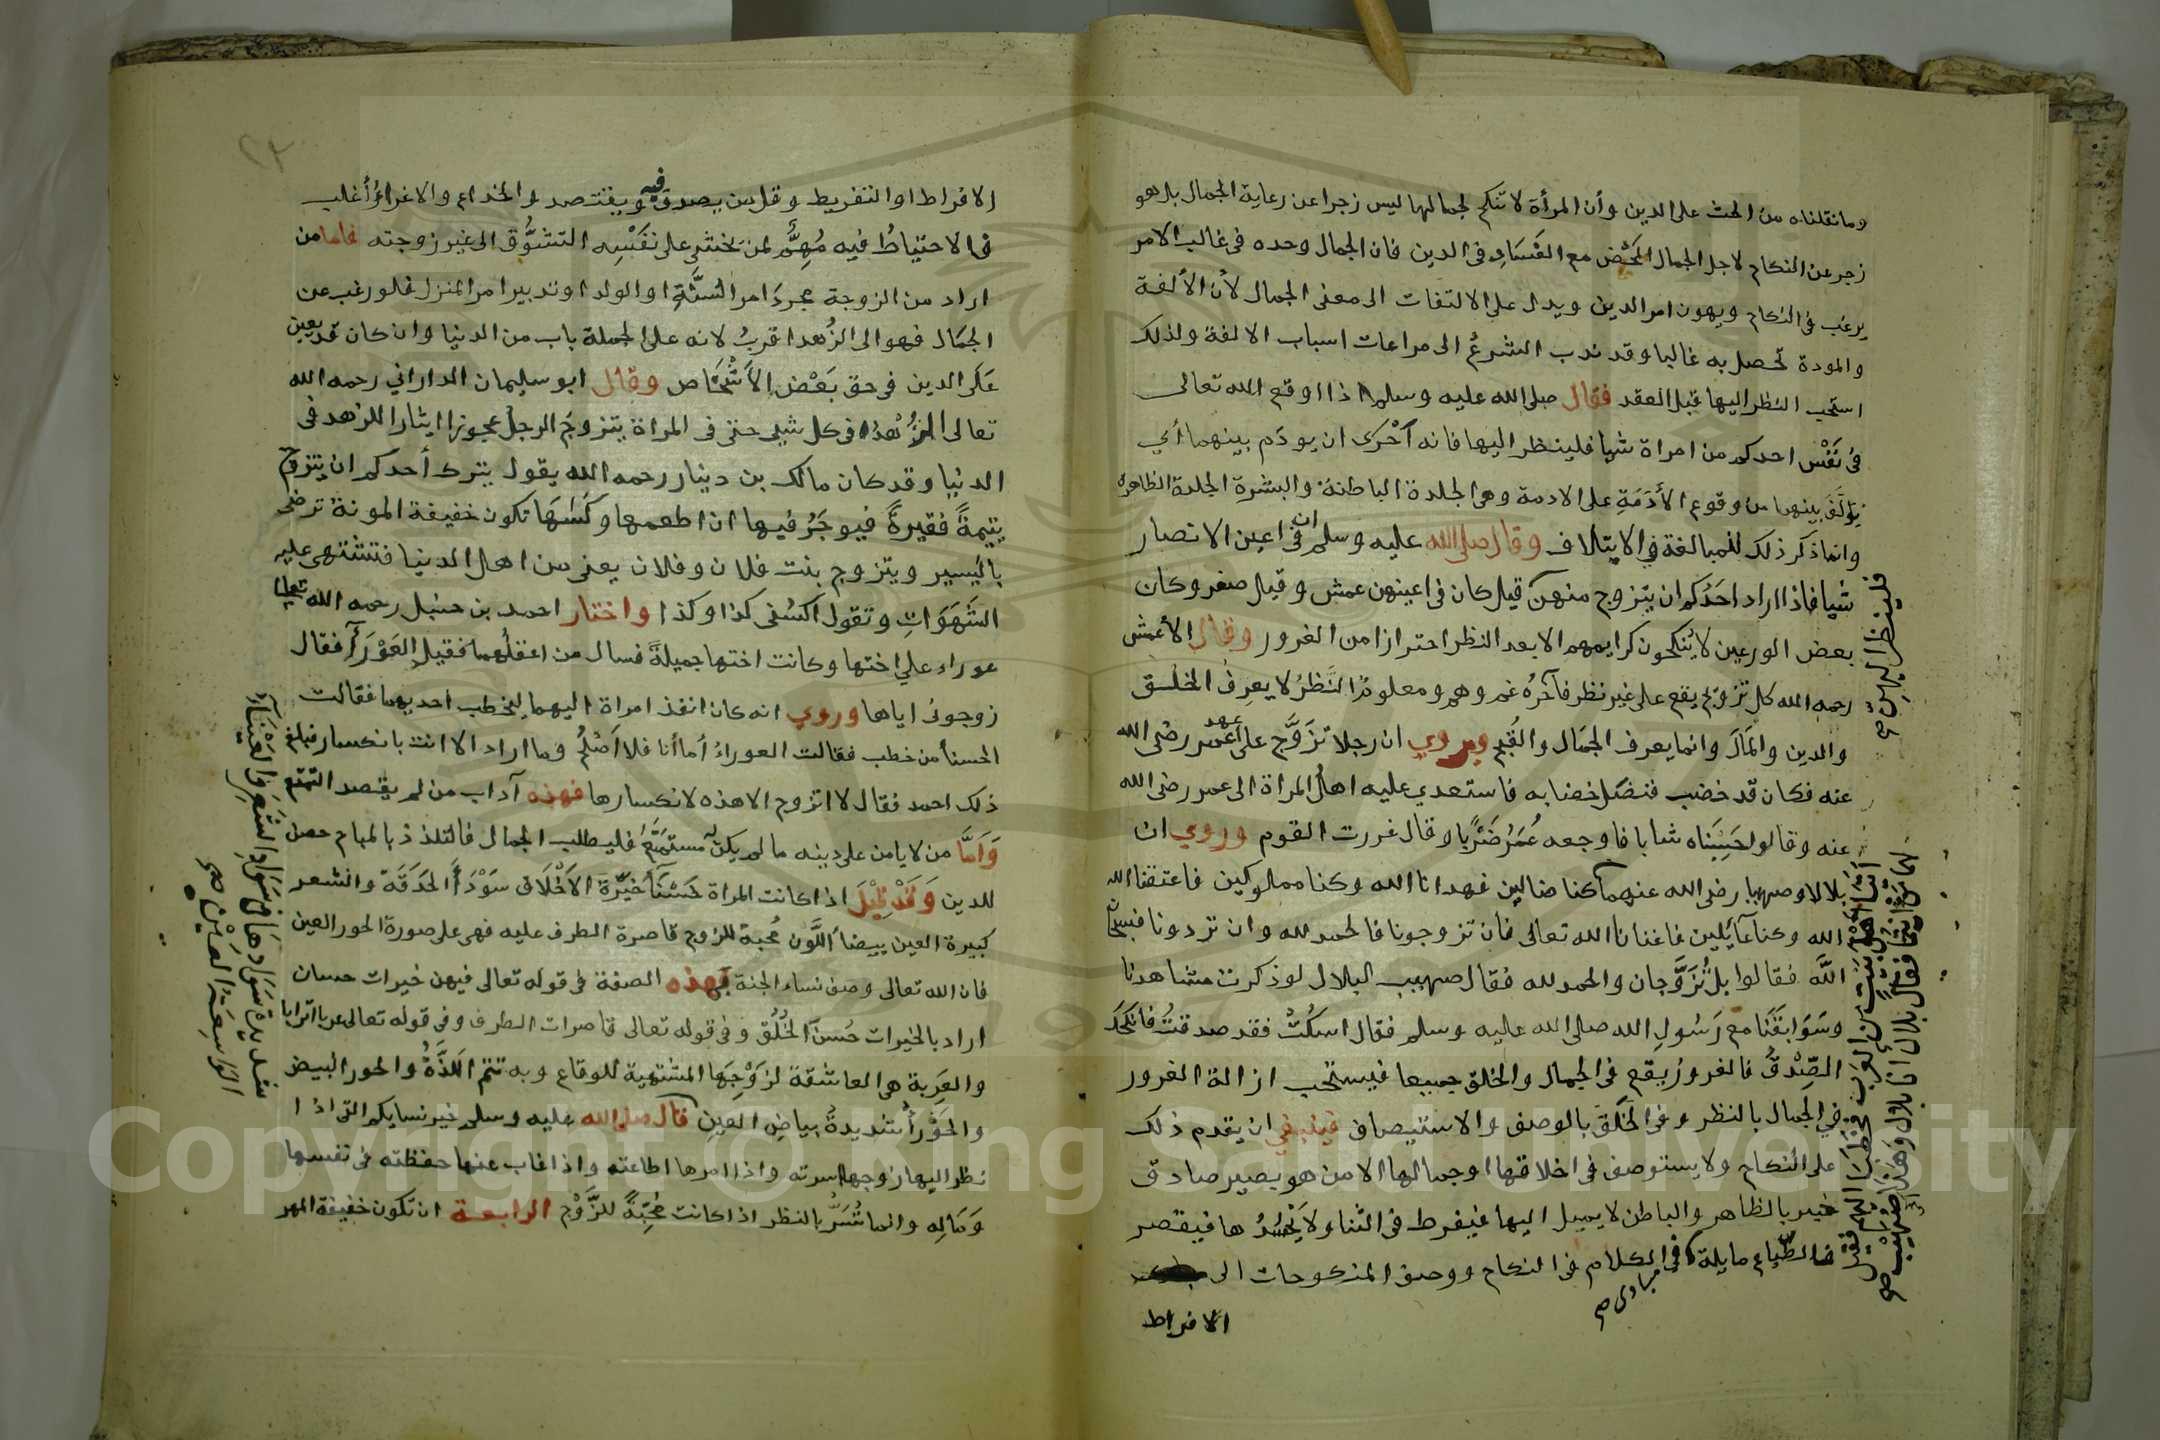 وما نقلناه من الحث على الدين وأن المرأة لا تنكح لجمالها ليس زجرا عن رعاية الجمال بل هو
زجر عن النكاح لاجل الجمال المحض مع الفساد في الدين فان الجمال وحده في غالب الامر
يرغب في النكاح ويهون امر الدين ويدل على الالتفات الى معنى الجمال لأن الألفة
والمودة تحصل به غالبا وقد ندب الشرع الى مراعات اسباب الالفة ولذلك
استحب النظر اليها قبل العقد فقال صلى الله عليه وسلم اذا اوقع الله تعالى
في نفس احدكم من امراة شيا فلينظر اليها فانه أحرى ان يودم بينهما أي
يؤلف بينهما من وقوع الأدمة على الادمة وهي الجلدة الباطنة والبشرة الجلدة الظاهرة
وانما ذكر ذلك للمبالغة في الايتلاف وقال صلى الله عليه وسلم ان في اعين الانصار
شيا فاذا اراد احدكم ان يتزوج منهن قيل كان في اعينهن عمش وقيل صغر وكان
بعض الورعين لا ينكحون كرايمهم الا بعد النظر احترازا من الغرور وقال الأعمش
رحمه الله كل تزوج يقع على غير نظر فآخره غم وهم ومعلوم النظر لا يعرف الخلق
والدين والمال وانما يعرف الجمال والقبح وروي ان رجلا تزوج على عهد عمر رضى الله
عنه فكان قد خضب فنصل خضابه فاستعدي عليه اهل المراة الى عمر رضى الله
عنه وقالوا حسبناه شابا فاوجعه عمر ضربا وقال غررت القوم وروي ان
بلالا وصهيبا رضى الله عنهما كنا ضالين فهدانا الله وكنا مملوكين فاعتقنا الله
الله وكنا عآيلين فاغنانا الله تعالى فان تزوجونا فالحمد لله وان تردونا فسبحان
الله فقالوا بل تزوجان والحمد لله فقال صهيب لبلال لو ذكرت مشاهدنا
وسوابقنا مع رسول الله صلى الله عليه وسلم فقال اسكت فقد صدقت فانكحك
الصدق فالغرور يقع في الجمال والخلق جميعا فيستحب ازالة الغرور
في الجمال بالنظر وفي الخلق بالوصف والاستيصاف فينبغي ان يقدم ذلك
على النكاح ولا يستوصف في اخلاقها وجمالها الا من هو بصير صادق
خبير بالظاهر والباطن لا يميل اليها فيفرط في الثناء ولا يحسدها فيقصر
فالطباع مايلة في الكلام في النكاح ووصف المنكوحات الى
مبادى صح
الافراط
فلينظر اليهن صح
أتيا اهل بيت من العرب فخطبا اليهم فقيل
لهما من انتما فقال بلال انا بلال وهذا صهيب صح
الافراط او التفريط وقل من يصدق فيه ويقتصد والخداع والاغراء أغلب
فالاحتياط فيه مهم لمن يخشى على نفسه التشوق الى غير زوجته فاما من
اراد من الزوجة مجرد امر السنة او الولد او تدبير امر المنزل فلو رغب عن
الجمال فهو الى الزهد اقرب لانه على الجملة باب من الدنيا وان كان قد يعين
على الدين في حق بعض الأشخاص وقال ابو سليمان الداراني رحمه الله
تعالى الزهد في كل شيء حتى في المراة يتزوج الرجل عجوزا ايثارا للزهد في
الدنيا وقد كان مالك بن دينار رحمه الله يقول يترك أحدكم ان يتزوج
يتيمة فقيرة فيوجر فيها ان اطعمها وكساها تكون خفيفة المونة ترضى
باليسير ويتزوج بنت فلان وفلان يعنى من اهل الدنيا فتشتهى عليه
الشهوات وتقول اكسنى كذا وكذا واختار احمد بن حنبل رحمه الله تعالى
عوراء على اختها وكانت اختها جميلة فسال من اعقلهما فقيل العورأ فقال
زوجونى اياها وروي انه كان انفذ امراة اليهما ليخطب احديهما فقالت
الحسنأ من خطب فقالت العوراء أما أنا فلا اصلح وما اراد الا انت بانكسار فبلغ
ذلك احمد فقال لا اتزوج الا هذه لانكسارها فهذه آداب من لم يقصد التمتع
وأما من لا يامن على دينه ما لم يكن له مستمتع فليطلب الجمال فالتلذذ بالمباح حصن
للدين وقد قيل اذا كانت المراة حسنأ خيرة الاخلاق سودأ الحدقة والشعر
كبيرة العين بيضأ اللون محبة للزوج قاصرة الطرف عليه فهى على صورة الحور العين
فان الله تعالى وصف نساء الجنة بهذه الصفة في قوله تعالى فيهن خيرات حسان
اراد بالخيرات حسن الخلق وفي قوله تعالى قاصرات الطرف وفي قوله تعالى عربا اترابا
والعربة هى العاشقة لزوجها المشتهية للوقاع وبه تتم اللذة والحور البيض
والحورأ شديدة بياض العين قال صلى الله عليه وسلم خير نسايكم التى اذا
نظر اليها زوجها سرته واذا امرها اطاعته واذا غاب عنها حفظته في نفسها
وماله وانما تسر بالنظر اذا كانت محبة للزوج الرابعة ان تكون خفيفة المهر
شديدة سوادها في سواد الشعر والعينآء
الواسعة العين صح